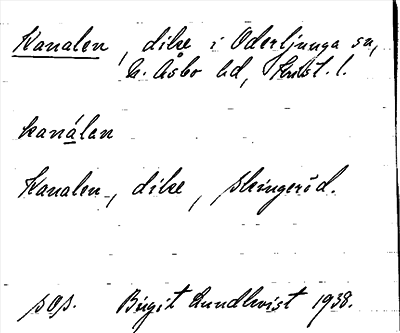 Kanalen, dike i Oderljunga sn,
N. Åsbo hd, Krist. l.
kanálan
Kanalen, dike, Skingeröd.
sOp. Birgit Lundkvist 1938.